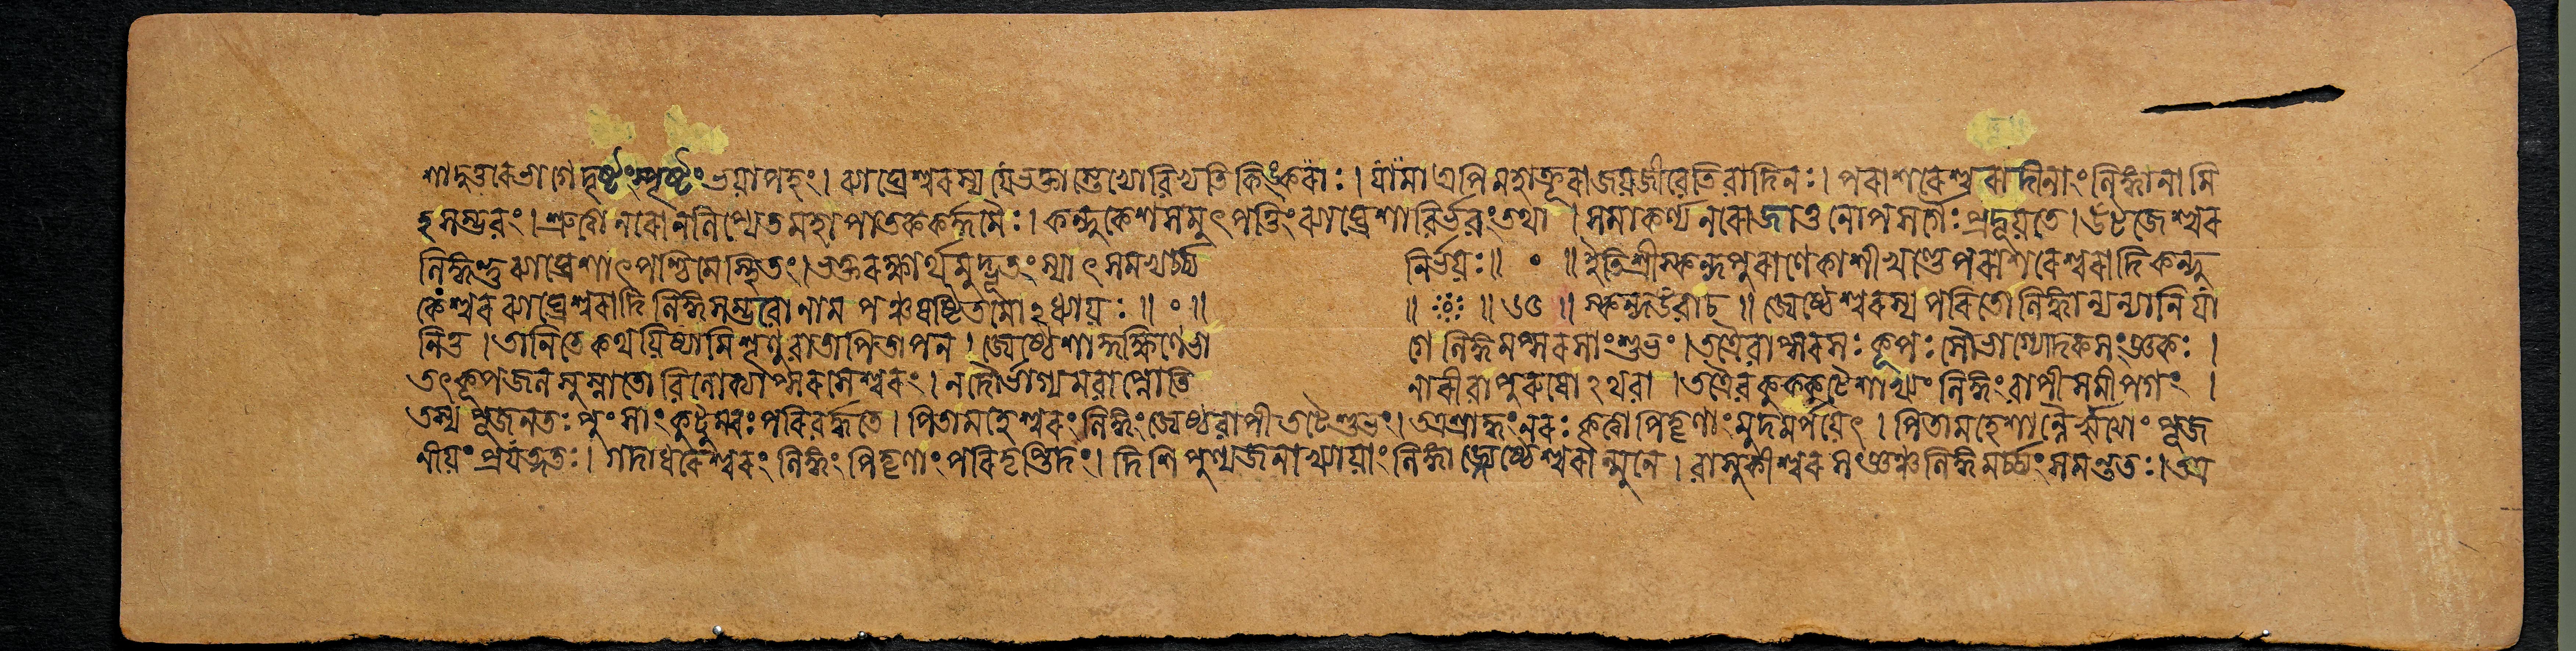 শাদুত্তরে ভাগে দৃষ্টং স্পৃষ্টং ভয়াপহং । ব্যাঘ্রেশ্বরস্য যে ভক্তাস্তেভ্যো বিভ্যতি কিঙ্করাঃ । যামা অপি মহাক্রূরা জয়জীবেতি বাদিনঃ । পরাশরেশ্বরাদীনাং লিঙ্গানামি
হ সম্ভবং । শ্রুত্বা নরো ন লিপ্যেত মহাপাতককর্দ্দমৈঃ । কন্দুকেশসমুৎপত্তিং ব্যাঘ্রেশাবির্ভবং তথা । সমাকর্ণ্য নরো জাতু নোপসর্গৈঃ প্রদূয়তে । উটজেশ্বর
লিঙ্গন্তু ব্যাঘ্রেশাৎ পশ্চিমে স্থিতং । ভক্তরক্ষার্থমুদ্ভূতং স্যাৎ সমভ্যর্চ্চ্য নির্ভয়ঃ ॥ ॰ ॥ ইতি শ্রীস্কন্দপুরাণে কাশীখণ্ডে পরাশরেশ্বরাদিকন্দু
কেশ্বরব্যাঘ্রেশ্বরাদিলিঙ্গসম্ভবো নাম পঞ্চষষ্টিতমোঽধ্যায়ঃ ॥ ॰ ॥ ॥ ৬৫ ॥ স্কন্দ উবাচ ॥ জ্যেষ্ঠেশ্বরস্য পরিতো লিঙ্গান্যন্যানি যা
নি তু । তানি তে কথয়িষ্যামি শৃণু বাতাপিতাপন । জ্যেষ্ঠেশাদ্দক্ষিণে ভাগে লিঙ্গমপ্সরসাং শুভং । তত্রৈবাপ্সরসঃ কূপঃ সৌভাগ্যোদকসংজ্ঞকঃ ।
তৎকূপজলসুস্নাতো বিলোক্যাপ্সরসেশ্বরং । ন দৌর্ভাগ্যমবাপ্নোতি নারী বা পুরুষোঽথবা । তত্রৈব কুক্কুটেশাখ্যং লিঙ্গং বাপীসমীপগং ।
তস্য পূজনতঃ পুংসাং কুটুম্বং পরিবর্দ্ধতে । পিতামহেশ্বরং লিঙ্গং জ্যেষ্ঠবাপীতটে শুভং । তত্র শ্রাদ্ধং নরঃ কৃত্বা পিতৄণাং মুদমর্পয়েৎ । পিতামহেশান্নৈর্ঋত্যাং পূজ
নীয়ং প্রযত্নতঃ । গদাধরেশ্বরং লিঙ্গং পিতৄণাং পরিতৃপ্তিদং । দিশি পুণ্যজনাখ্যায়াং লিঙ্গাজ্জ্যেষ্ঠেশ্বরান্মুনে । বাসুকীশ্বরসংজ্ঞঞ্চ লিঙ্গমর্চ্চ্যং সমন্ততঃ । তত্র